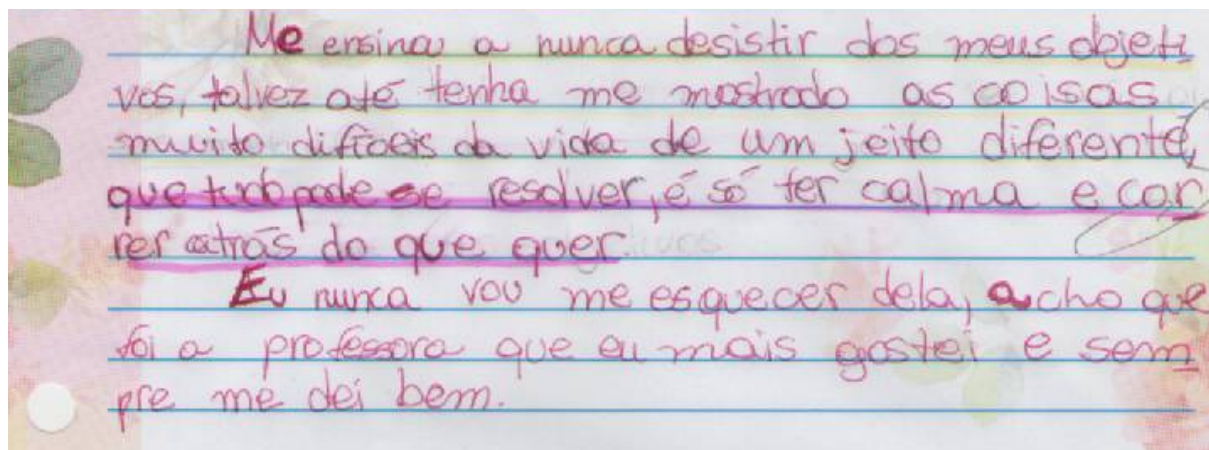 Me ensinou a nunca desistir dos meus objeti
vos, talvez até tenha me mostrado as coisas
muito difíceis da vida de um jeito diferente,
que tudo pode se resolver, é só ter calma e cor
rer atrás do que quer.
Eu nunca vou me esquecer dela, acho que
foi a professora que eu mais gostei e sem
pre me dei bem.